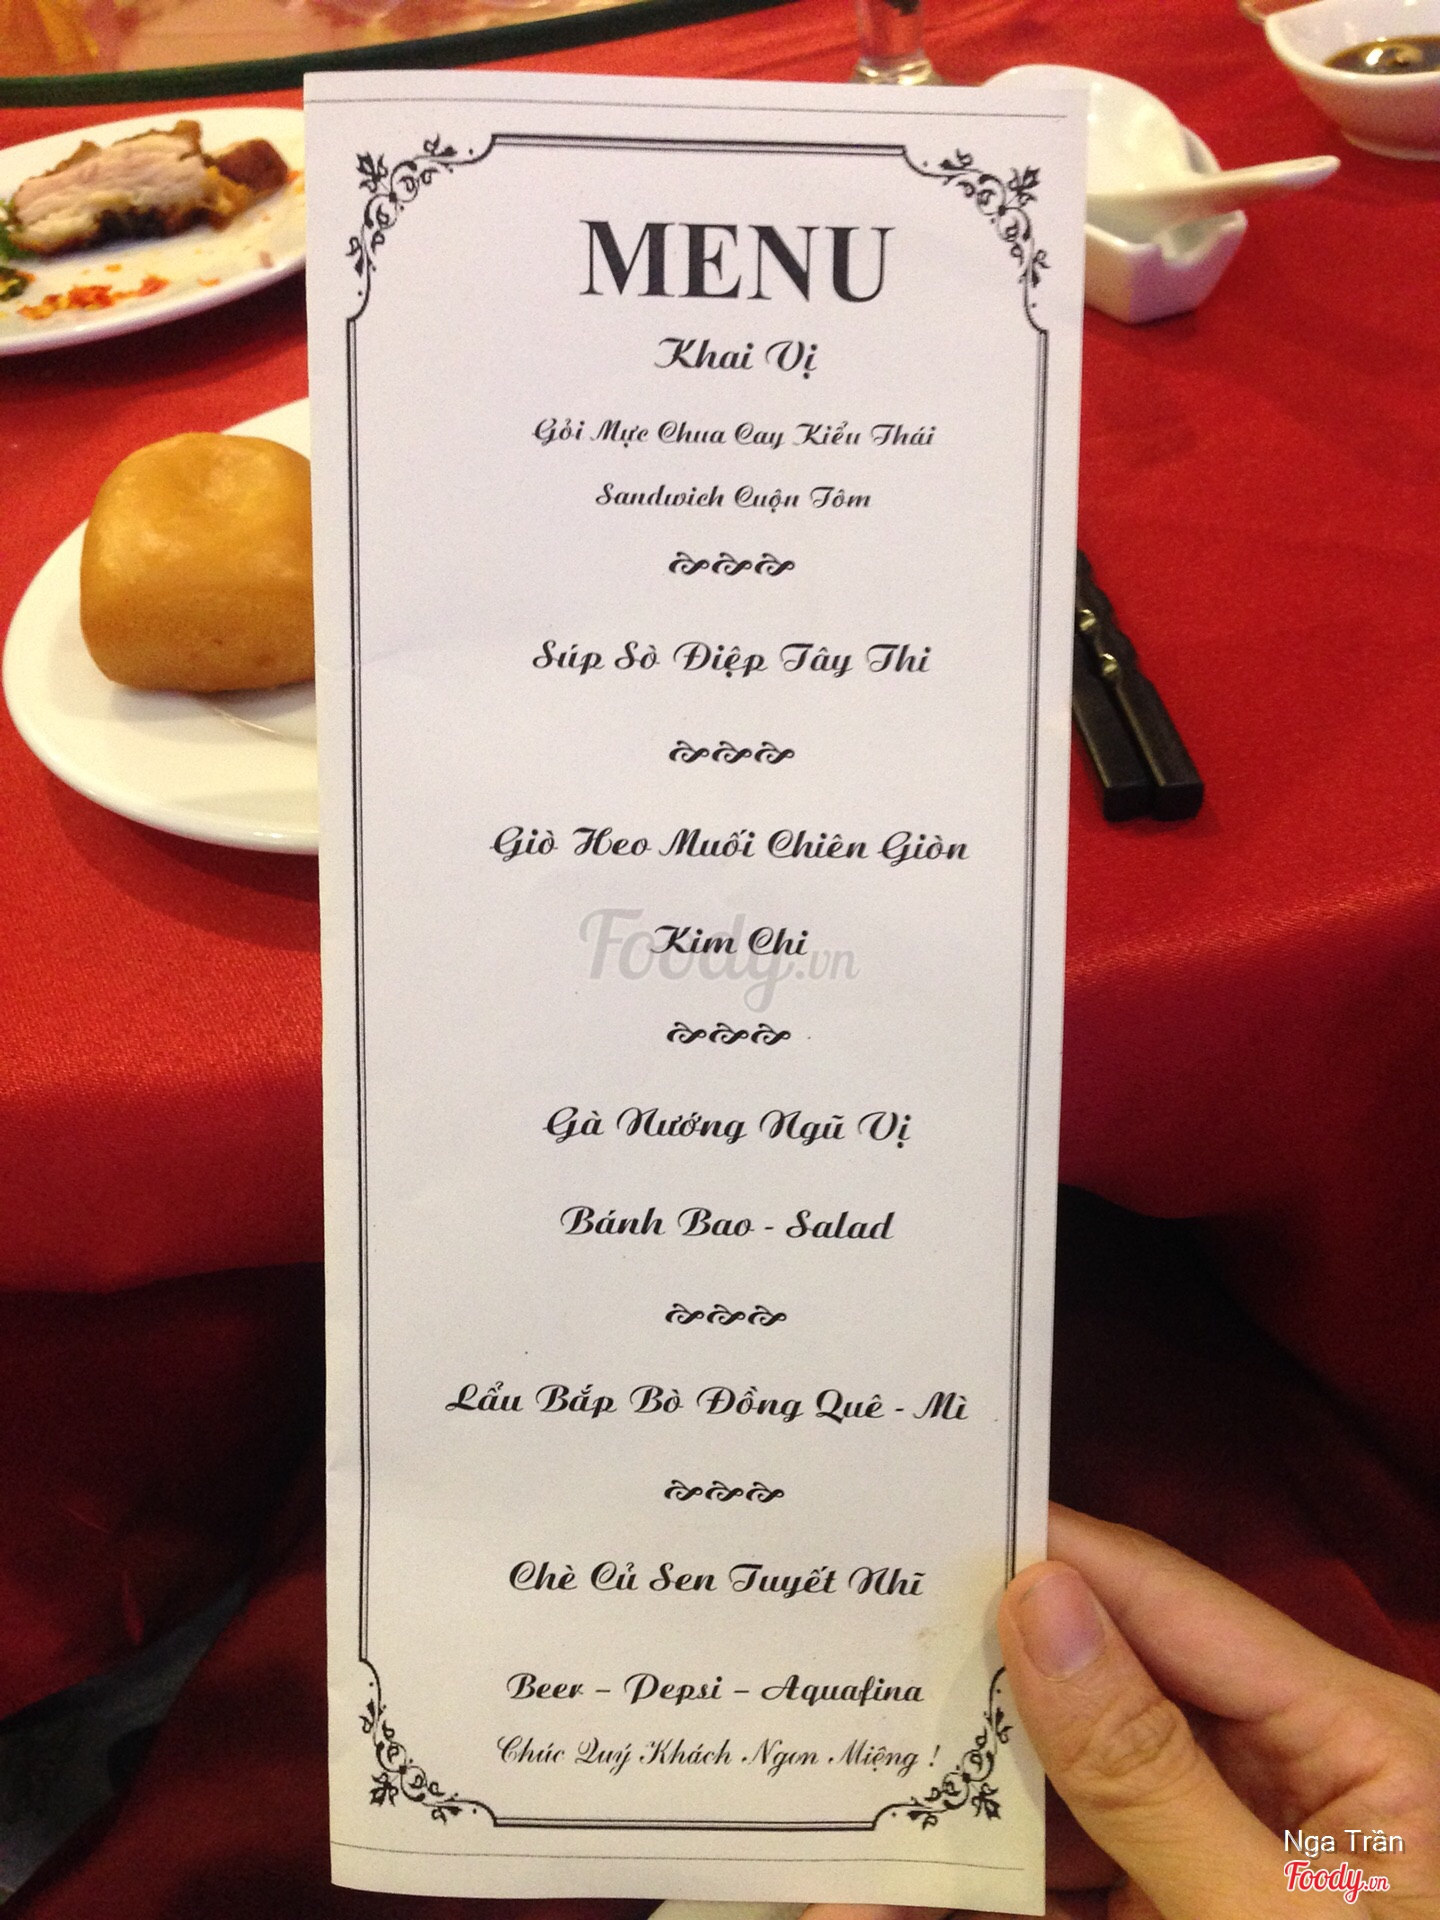 MENU
Khai Vị
Gỏi Mực Chua Cay Kiểu Thái
Sandwich Cuộn Tôm
Súp Sò Điệp Tây Thi
Giò Heo Muối Chiên Giòn
Kim Chi
Foody.vn
Gà Nướng Ngũ Vị
Bánh Bao - Salad
Lẩu Bắp Bò Đồng Quê - Mì
Chè Củ Sen Tuyết Nhĩ
Beer – Pepsi – Aquafina
Chúc Quý Khách Ngon Miệng !
Nga Trần
Foody.vn